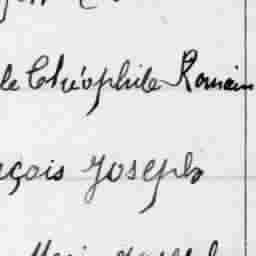 le Théophile Romain
nçois Joseph